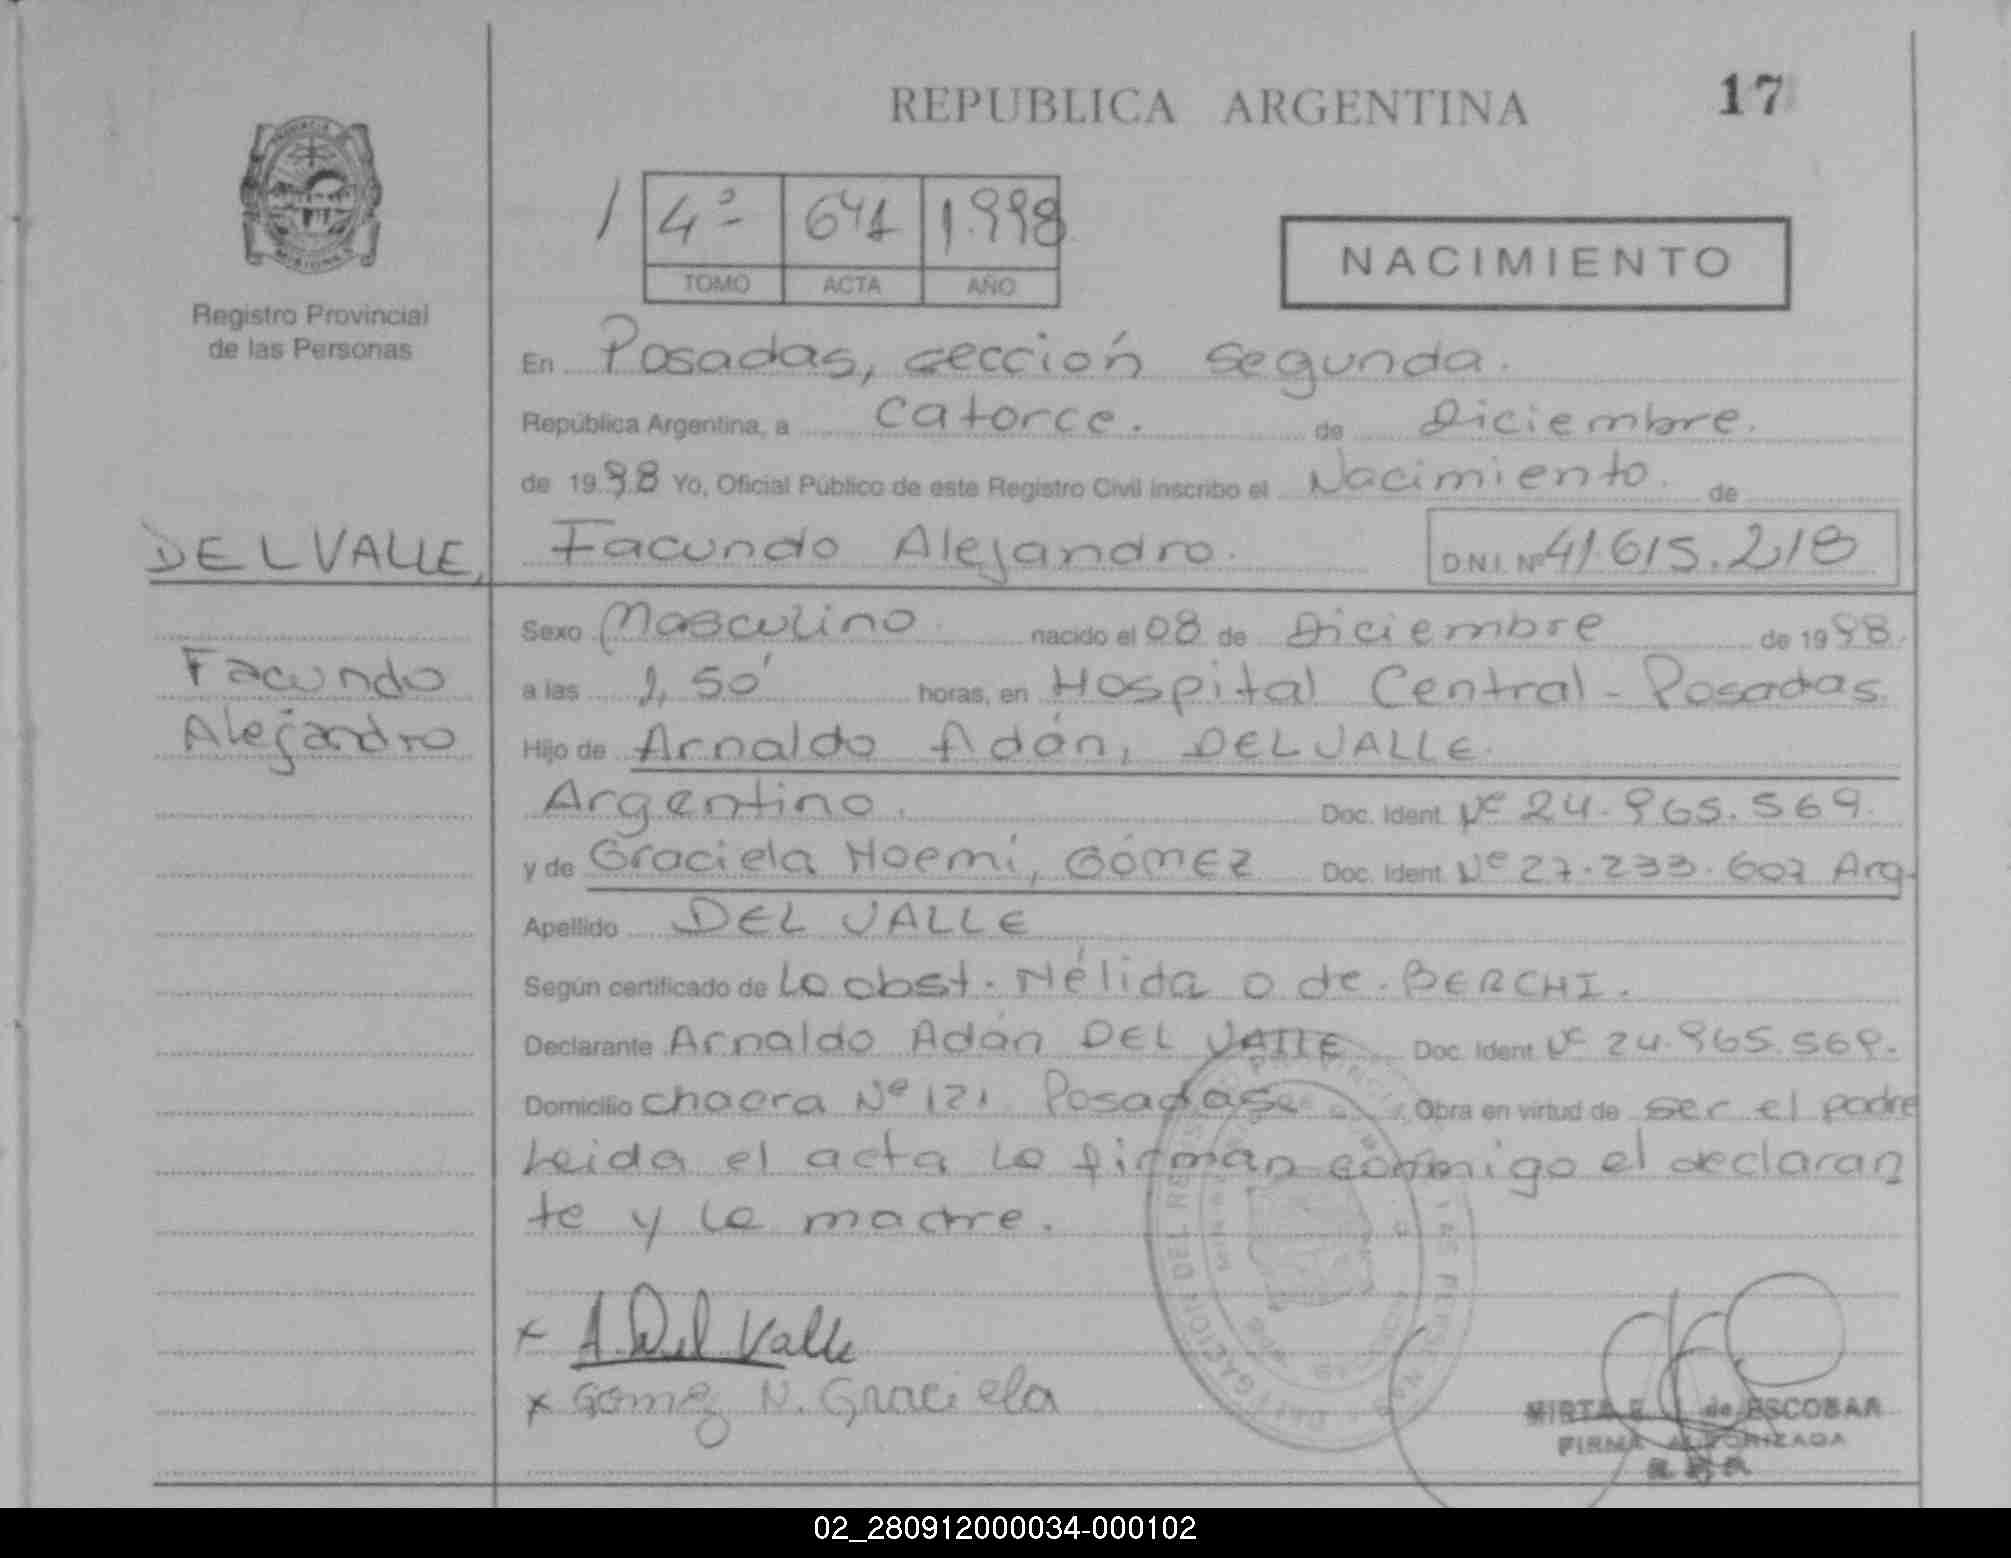 REPUBLICA ARGENTINA
17
PROVINCIA
MISIONES
Registro Provincial
de las Personas
4º 641 1.998
TOMO ACTA AÑO
NACIMIENTO
En Posadas, sección segunda.
República Argentina, a catorce. de Diciembre.
de 1998 Yo, Oficial Público de este Registro Civil inscribo el Nacimiento. de
DELVALLE, Facundo Alejandro. D.N.I. Nº 41.615.218
Sexo Masculino. nacido el 08 de Diciembre de 1998.
Facundo
a las 1,50' horas, en Hospital Central - Posadas.
Alejandro
Hijo de Arnaldo Adán, DELVALLE.
Argentino. Doc. Ident. Nº 24.965.569.
y de Graciela Noemí, GÓMEZ Doc. Ident. Nº 27.233.607 Arg.
Apellido DEL VALLE
Según certificado de La obst. Nélida O de. BERCHI.
Declarante Arnaldo Adán DEL VALLE Doc. Ident. Nº 24.965.569.
Domicilio chacra Nº 121 Posadas Obra en virtud de ser el padre
Leida el acta la firman conmigo el declaran
te y la madre.
x A. Del Valle
x Gomez N. Graciela
MIRTA E. de ESCOBAR
FIRMA AUTORIZADA
02_280912000034-000102